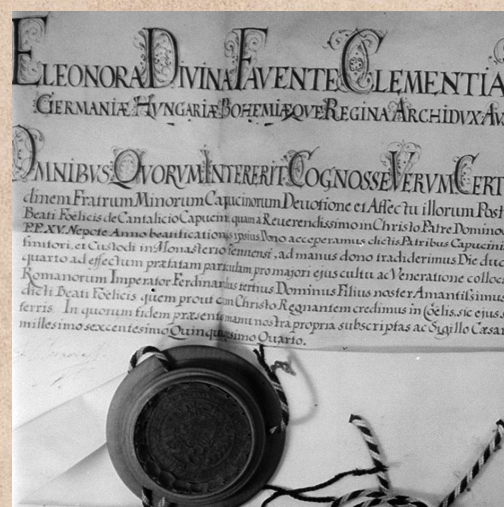 ELEONORA DIVINA FAVENTE CLEMENTIA
GERMANIÆ HVNGARIÆ BOHEMIÆQVE REGINA ARCHIDVX AV
OMNIBVS QVORVM INTERERIT COGNOSSE VERVM CERT
dinem Fratrum Minorum Capucinorum Deuotione et Affectu illorum Post
Beati Foelicis de Cantalicio Capucini quam a Reuerendissimo in Christo Patre Domino
P.P. XV. Nepote Anno beautificationis ipsius Dono acceperamus dictis Patribus Capucini
finitori, et Custodi in Monasterio , ad manus dono tradiderimus Die duo
quarto ad effectum præfatam particulam pro majori ejus cultu ac Veneratione colloc
Romanorum Imperator Ferdinandus tertius Dominus Filius noster Amantissim
dicti Beati Foelicis quem prout cum Christo Regnantem credimus in Coelis, sic ejus
ferris. In quorum fidem præsentes manu nostra propria subscriptas ac Sigillo Cæsar
millesimo sexcentesimo Quinquagesimo Quarto.